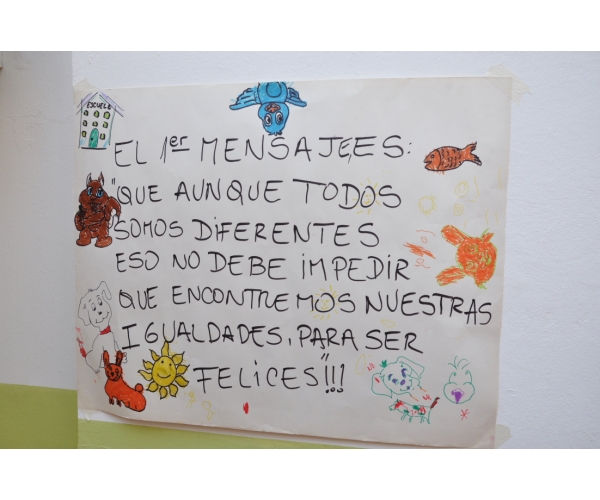 ESCUELA
EL 1er MENSAJE ES:
"QUE AUNQUE TODOS
SOMOS DIFERENTES
ESO NO DEBE IMPEDIR
QUE ENCONTREMOS NUESTRAS
IGUALDADES, PARA SER
FELICES"!!!